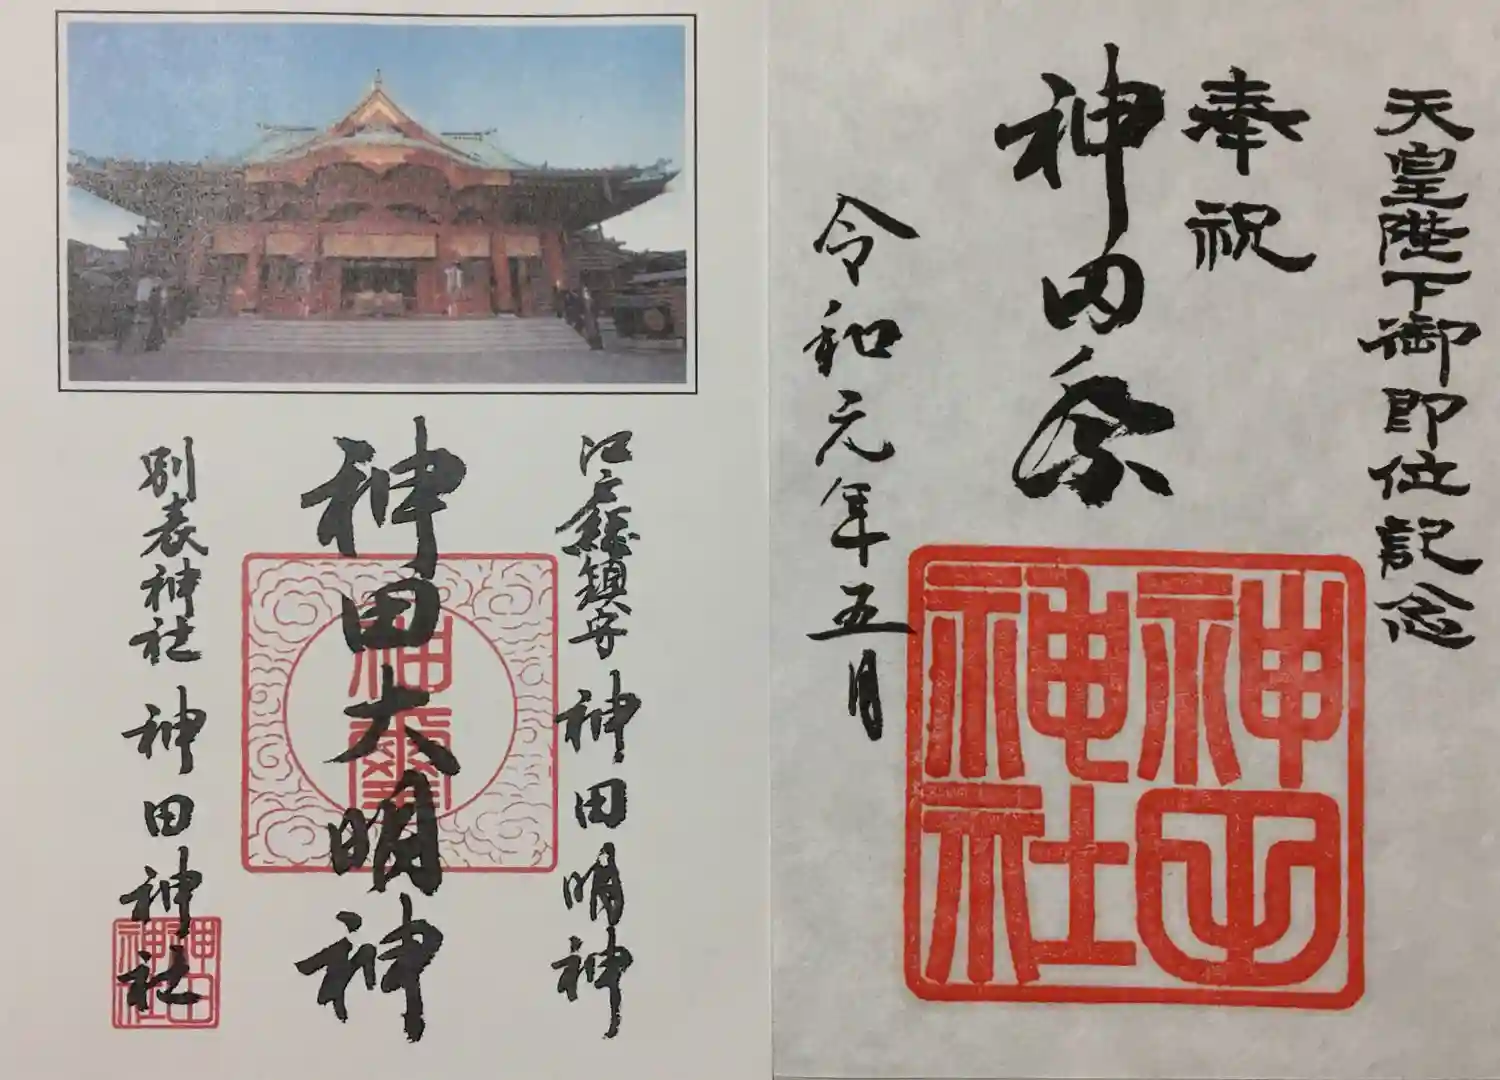 天皇陛下御即位記念
奉祝
神田祭
令和元年五月
神田神社
江戸総鎮守 神田明神
神田大明神
神璽
別表神社 神田神社
神田神社